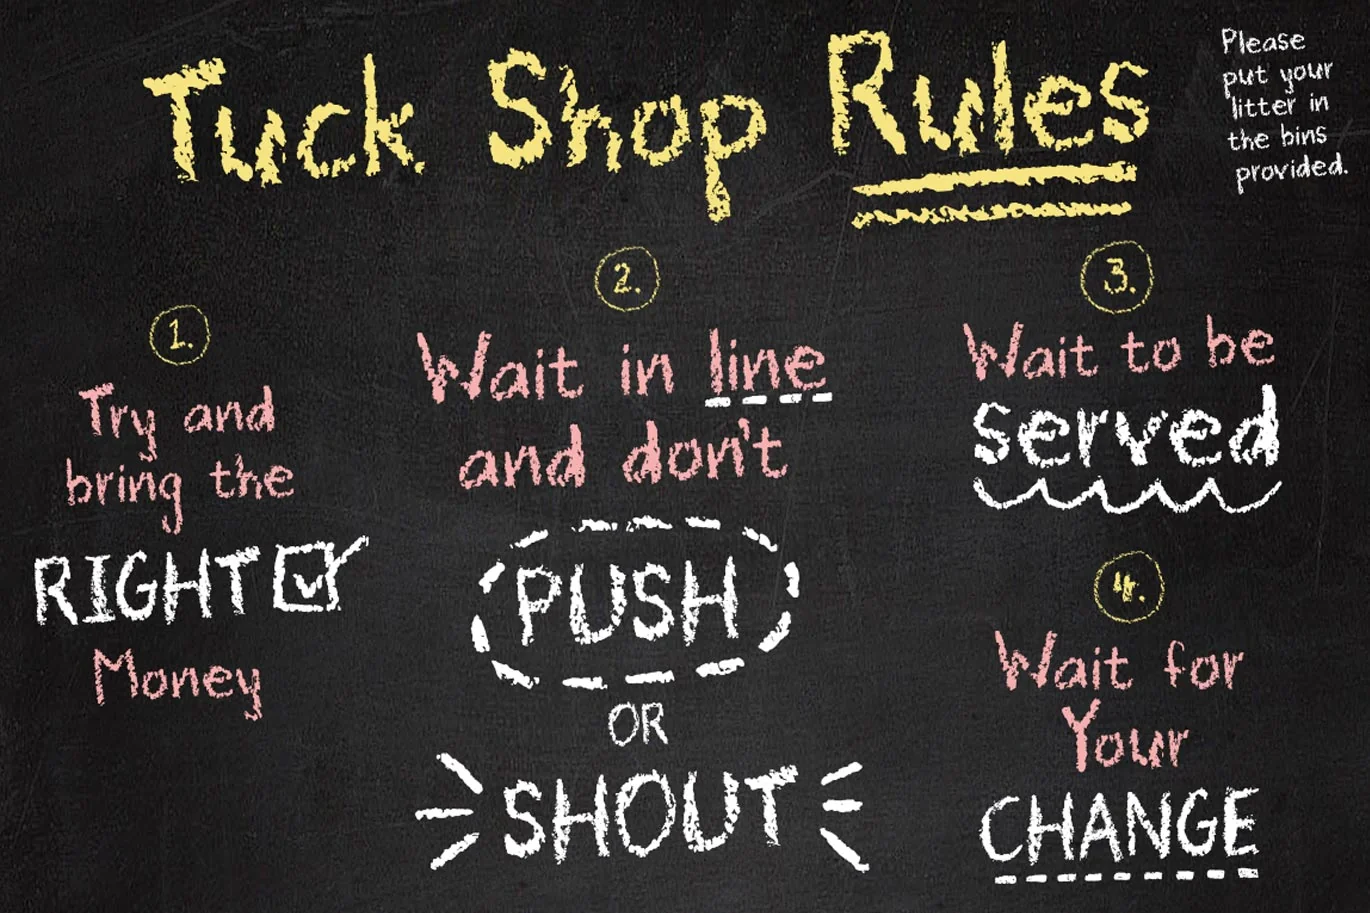 Tuck Shop Rules
Please
put your
litter in
the bins
provided.
1.
Try and
bring the
RIGHT
Money
2.
Wait in line
and don't
PUSH
OR
SHOUT
3.
Wait to be
served
4.
Wait for
Your
CHANGE